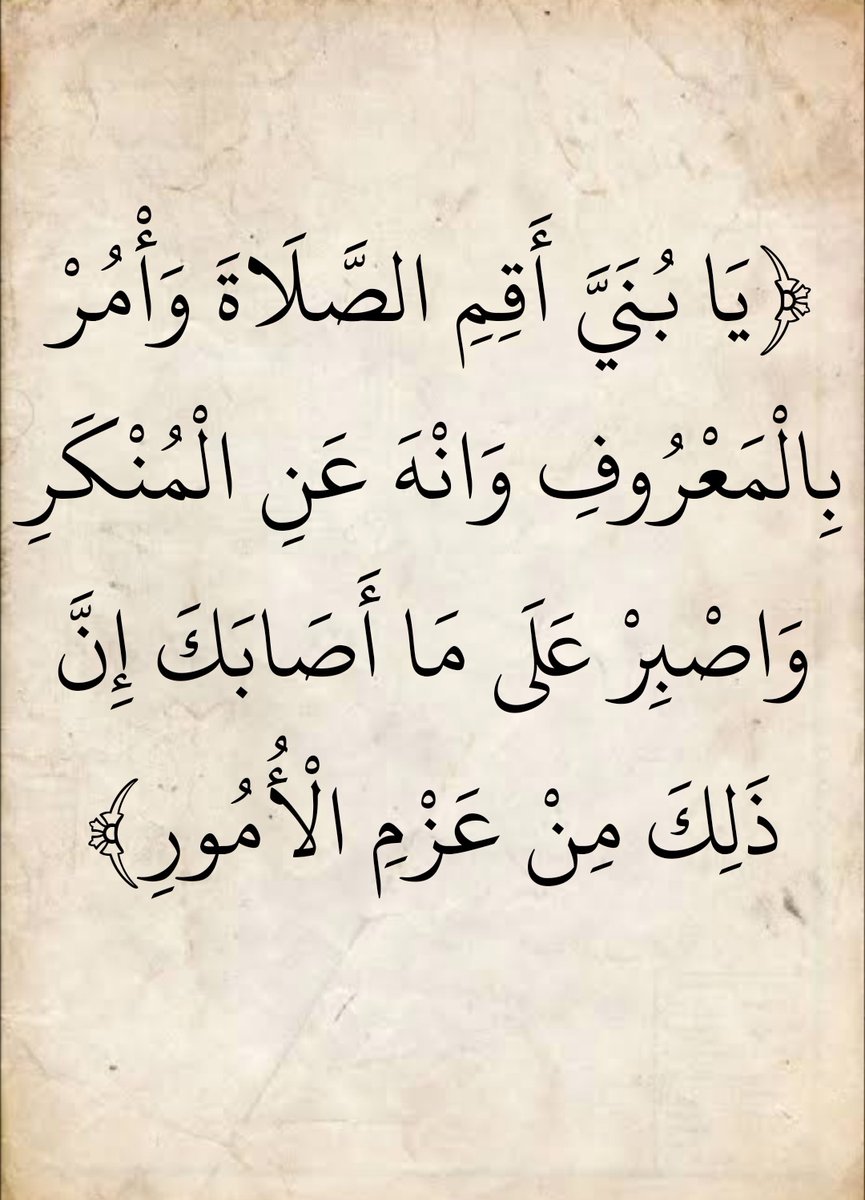 ﴿يَا بُنَيَّ أَقِمِ الصَّلَاةَ وَأْمُرْ
بِالْمَعْرُوفِ وَانْهَ عَنِ الْمُنْكَرِ
وَاصْبِرْ عَلَى مَا أَصَابَكَ إِنَّ
ذَلِكَ مِنْ عَزْمِ الْأُمُورِ﴾